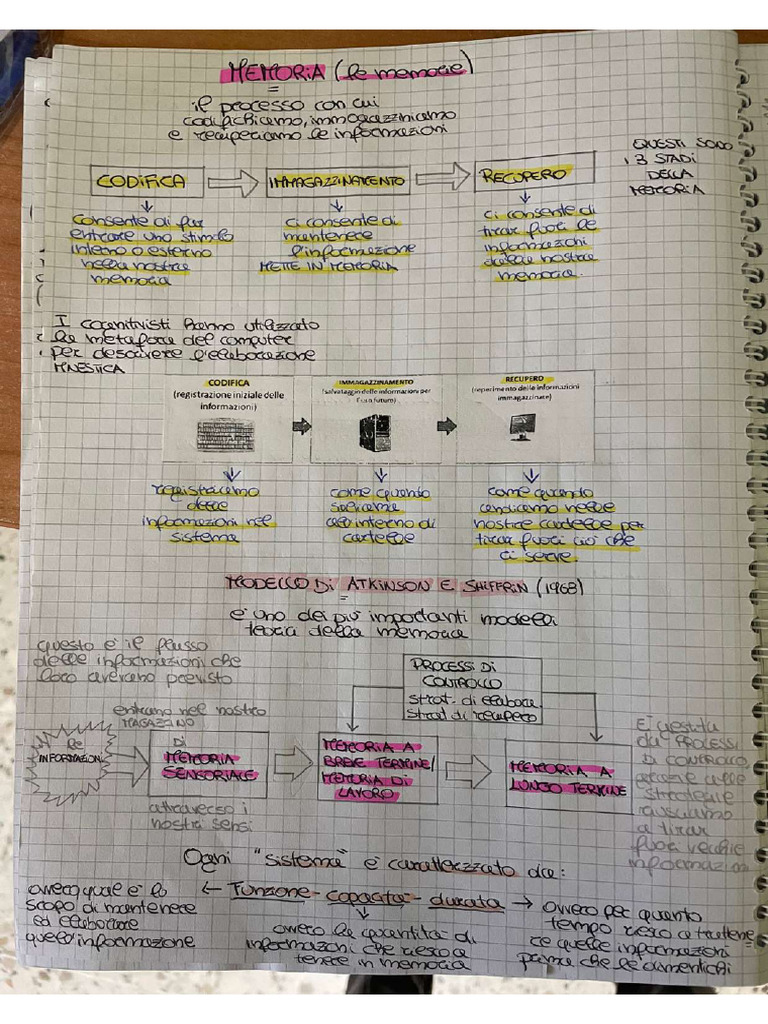 MEMORIA (le memorie)
=
il processo con cui
codifichiamo, immagazziniamo
e recuperiamo le informazioni
QUESTI SONO
i 3 STADI
DELLA
MEMORIA
CODIFICA
IMMAGAZZINAMENTO
RECUPERO
Consente di far
entrare uno stimolo
interno o esterno
nella nostra
memoria
ci consente di
mantenere
l'informazione
METTE IN MEMORIA
ci consente di
tirar fuori le
informazioni
dalla nostra
memoria.
I cognitivisti hanno utilizzato
la metafora del computer
per descrivere l'elaborazione
MNESTICA
CODIFICA
(registrazione iniziale delle
informazioni)
IMMAGAZZINAMENTO
(salvataggio delle informazioni per
l'uso futuro)
RECUPERO
(reperimento delle informazioni
immagazzinate)
registriamo
delle
informazioni nel
sistema
come quando
salviamo
all'interno di
cartelle
come quando
andiamo nelle
nostre cartelle per
tirar fuori ciò che
ci serve.
MODELLO Di ATKINSON E SHIFFRIN (1968)
=
è uno dei più importanti modelli
teoria della memoria
questo è il flusso
delle informazioni che
loro avevano previsto
PROCESSI DI
CONTROLLO
strat. di elabora.
strat. di recupero
entrano nel nostro
MAGAZZINO
le
INFORMAZIONI
DI
MEMORIA
SENSORIALE
MEMORIA A
BREVE TERMINE/
MEMORIA DI
LAVORO
MEMORIA A
LUNGO TERMINE
attraverso i
nostri sensi
E' gestita
da PROCESSI
DI CONTROLLO
grazie alle
strategie
riusciamo
a tirar
fuori vecchie
informazioni
Ogni "sistema" è caratterizzato da:
← Funzione - capacità - durata →
ovvero qual è lo
scopo di mantenere
ed elaborare
quell'informazione
ovvero la quantità di
informazioni che riesco a
tenere in memoria
ovvero per quanto
tempo riesco a trattene=
re quelle informazioni
prima che le dimentichi